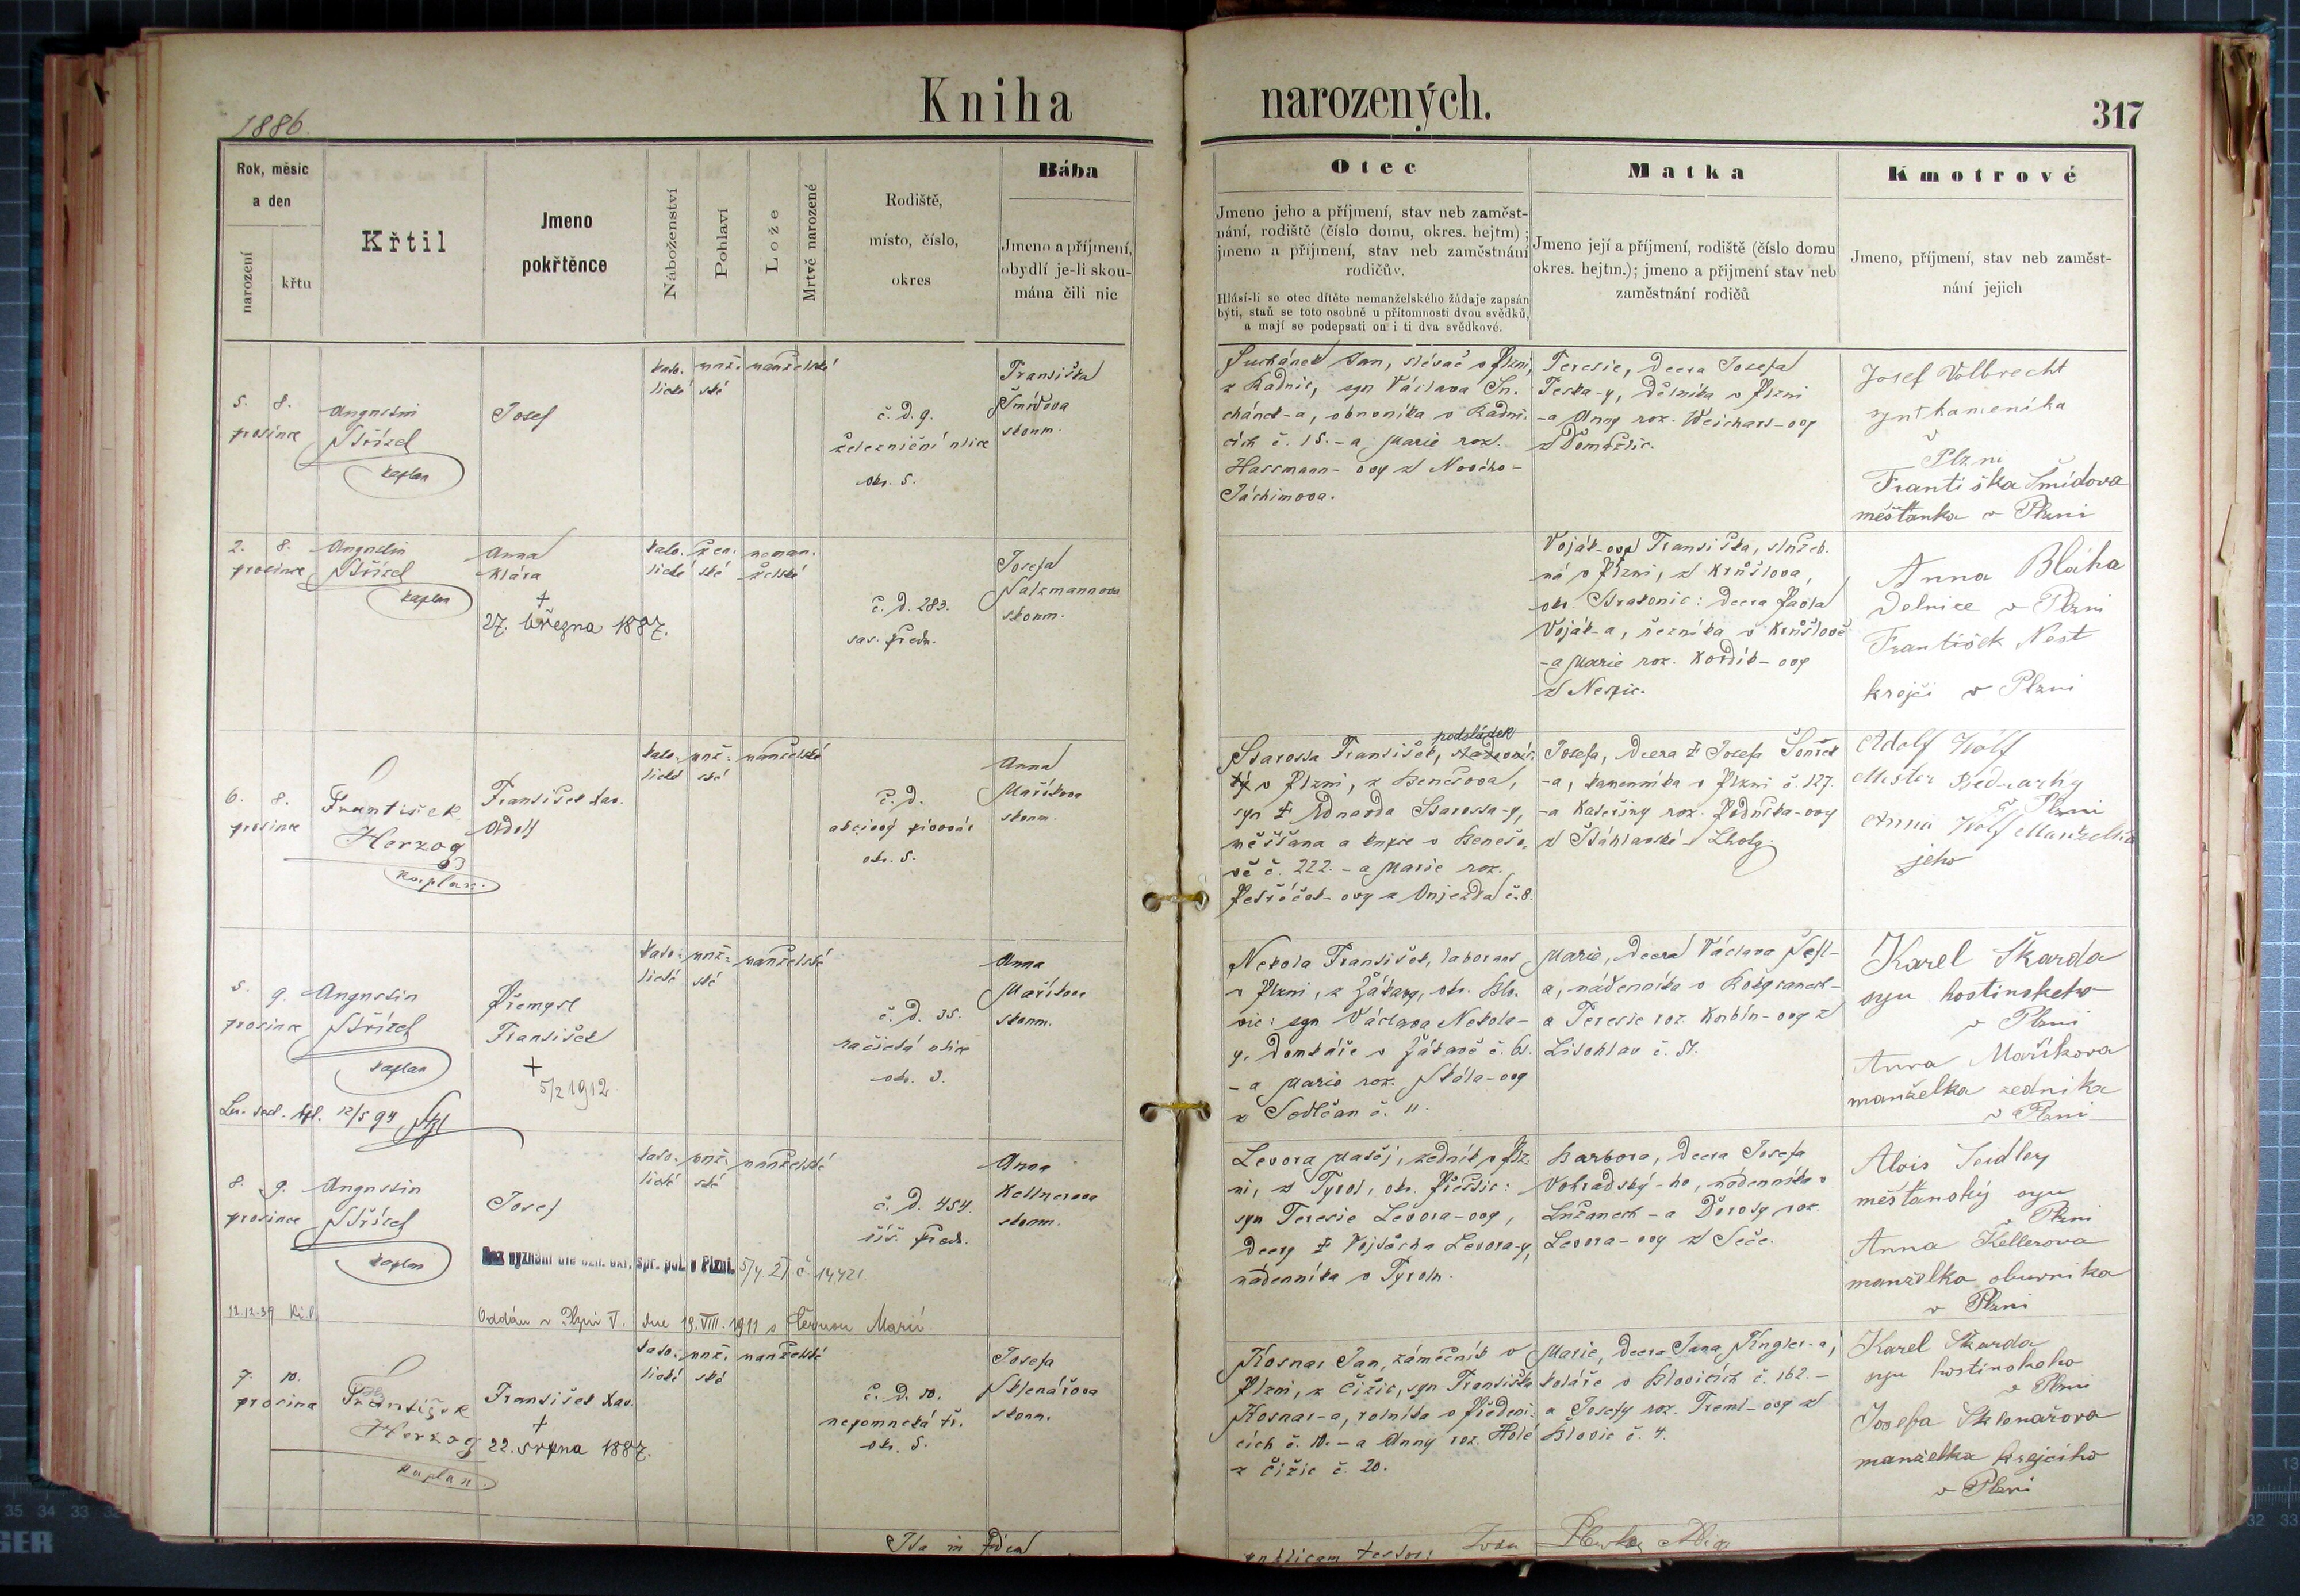 1886.
Kniha narozených.
317
Rok, měsíc
a den
narození
křtu
Křtil
Jmeno
pokřtěnce
Náboženství
Pohlaví
Lože
Mrtvě narozené
Rodiště,
místo, číslo,
okres
Bába
Jmeno a příjmení,
obydlí je-li skou-
mána čili nic
Otec
Jmeno jeho a příjmení, stav neb zaměst-
nání, rodiště (číslo domu, okres. hejtm);
jmeno a příjmení, stav neb zaměstnání
rodičův.
Hlásí-li se otec dítěte nemanželského žádaje zapsán
býti, staň se toto osobně u přítomnosti dvou svědků,
a mají se podepsati on i ti dva svědkové.
Matka
Jmeno její a příjmení, rodiště (číslo domu
okres. hejtm.); jmeno a přijmení stav neb
zaměstnání rodičů
Kmotrové
Jmeno, příjmení, stav neb zaměst-
nání jejich
5. 8.
prosince
Augustin
Střízek
kaplan
Josef
kato- muž- manželské
lické ské
č. d. 9.
železniční ulice
okr. 5.
Františka
Šmídova
skoum.
Suchánek Jan, slévač v Plzni,
z Radnic, syn Václava Su-
chánek-a, obuvníka v Radni-
cích č. 15. - a Marie roz.
Hassmann-ovy z Nového-
Jáchimova.
Teresie, dcera Josefa
Teska-y, dělníka v Plzni
-a Anny roz. Weichart-ovy
z Domažlic.
Josef Volbrecht
syn kameníka
v Plzni
Františka Šmídova
měšťanka v Plzni
2. 8.
prosince
Augustin
Střízek
kaplan
Anna
Klára
+
27. března 1887.
kato- žen- neman-
lické ské želské
č. d. 283.
sas. předm.
Josefa
Salzmannova
skoum.
Voják-ova Františka, služeb-
ná v Plzni, z Krušlova,
okr. Strakonic: dcera Pavla
Voják-a, řezníka v Krušlově
-a Marie roz. Kordík-ovy
z Nespic.
Anna Bláha
Delnice v Plzni
František Nest
krejčí v Plzni
6. 8.
prosince
František
Herzog
kaplan.
František Xav.
Adolf
kato- muž- manželské
lické ské
č. d.
akciový pivovár
okr. 5.
Anna
Maříkova
skoum.
podsládek
Starosta František,
v Plzni, z Benešova,
syn † Eduarda Starosta-y,
měšťana a kupce v Benešo-
vě č. 222. - a Marie roz.
Petříček-ovy z Onjezda č. 8.
Josefa, dcera † Josefa
-a, kameníka v Plzni č. 127.
-a Kateřiny roz. Poduška-ovy
z Šťáhlavské Lhoty.
Adolf Wolf
Mistr Bednarký
v Plzni
Anna Wolf Manželka
jeho
5. 9.
prosince
Augustin
Střízek
kaplan
Přemysl
František
+
5/2 1912
kato- muž- manželské
lické ské
č. d. 35.
račická ulice
okr. 3.
Anna
Maříkova
skoum.
Nekola František, laborant
v Plzni, z Žákavy, okr. Blo-
vic: syn Václava Nekola-
y, domkáře v Žákavě č. 61.
- a Marie roz. Skála-ovy
z Sedlčan č. 11.
Marie, dcera Václava Šefl-
a, nádenníka v Kokyranech-
a Teresie roz. Korbín-ovy z
Litohlav č. 51.
Karel Škarda
syn hostinskeho
v Plzni
Anna Maříkova
manželka zednika
v Plzni
12/5 94
8. 9.
prosince
Augustin
Střízek
kaplan
Josef
kato- muž- manželské
lické ské
č. d. 454.
říš. předm.
Anna
Kellnerova
skoum.
Bez vyznání dle ozn. okr. spr. pol. v Plzni. 5/4. 21. č. 14421.
Levora Matěj, zedník v Plz-
ni, z Tyrol, okr. Přeštic:
syn Teresie Levora-ovy,
dcery † Vojtěcha Levora-y,
nádenníka v Tyrolu.
Barbora, dcera Josefa
Vohradský-ho, nádenníka v
Lužanech - a Doroty roz.
Levora-ovy z Seče.
Alois Seidley
měšťanský syn
v Plzni
Anna Kellerova
manželka obuvnika
v Plzni
12.12.39
Oddán v Plzni V. dne 19. VIII. 1911 s Černou Marií.
7. 10.
prosince
František
Herzog
kaplan.
František Xav.
+
22. srpna 1887.
kato- muž- manželské
lické ské
č. d. 10.
nepomucká tř.
okr. 5.
Josefa
Sklenářova
skoum.
Kosnar Jan, zámečník v
Plzni, z Čižic, syn Františka
Kosnar-a, rolníka v Předeni-
cích č. 10. - a Anny roz. Holé
z Čižic č. 20.
Marie, dcera Jana Singler-a,
koláře v Blovicích č. 162. -
a Josefy roz. Treml-ovy z
Blovic č. 4.
Karel Škarda
syn hostinskeho
v Plzni
Josefa Sklenařova
manželka krejciho
v Plzni
Ita in fidem
publicam testor: